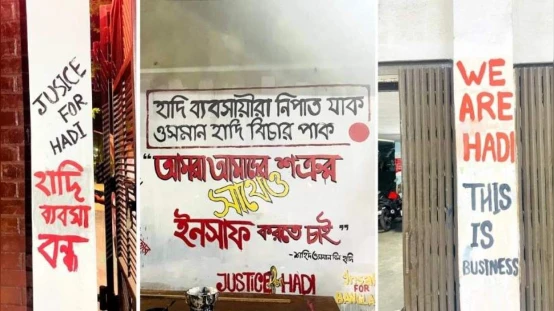 JUSTICE
FOR
HADI
হাদি
ব্যবসা
বন্ধ
হাদি ব্যবসায়ীরা নিপাত যাক
ওসমান হাদি বিচার পাক
"আমরা আমাদের শত্রুর
সাথেও
ইনসাফ করতে চাই"
JUSTICE HADI
FOR
WE
ARE
HADI
THIS
IS
BUSINESS